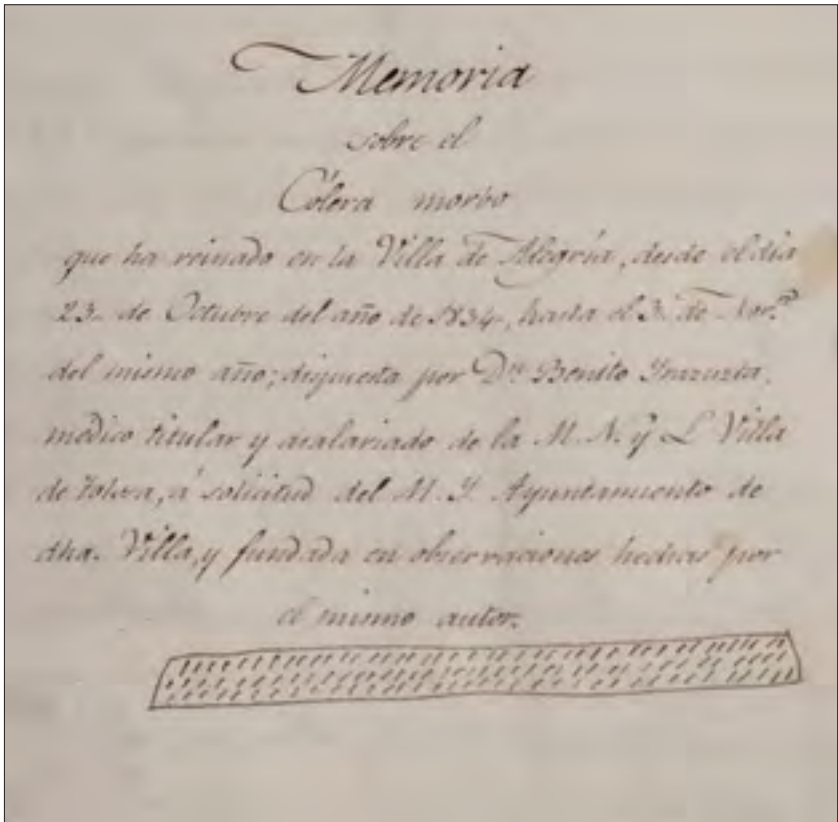 Memoria
sobre el
Cólera morbo
que ha reinado en la Villa de Alegría, desde el dia
23. de Octubre del año de 1834, hasta el 3. de Nov.e
del mismo año; dispuesta por Dn Benito
medico titular y asalariado de la M. N. y L Villa
de Tolosa, á solicitud del M. Y. Ayuntamiento de
dha. Villa, y fundada en observaciones hechas por
el mismo autor.